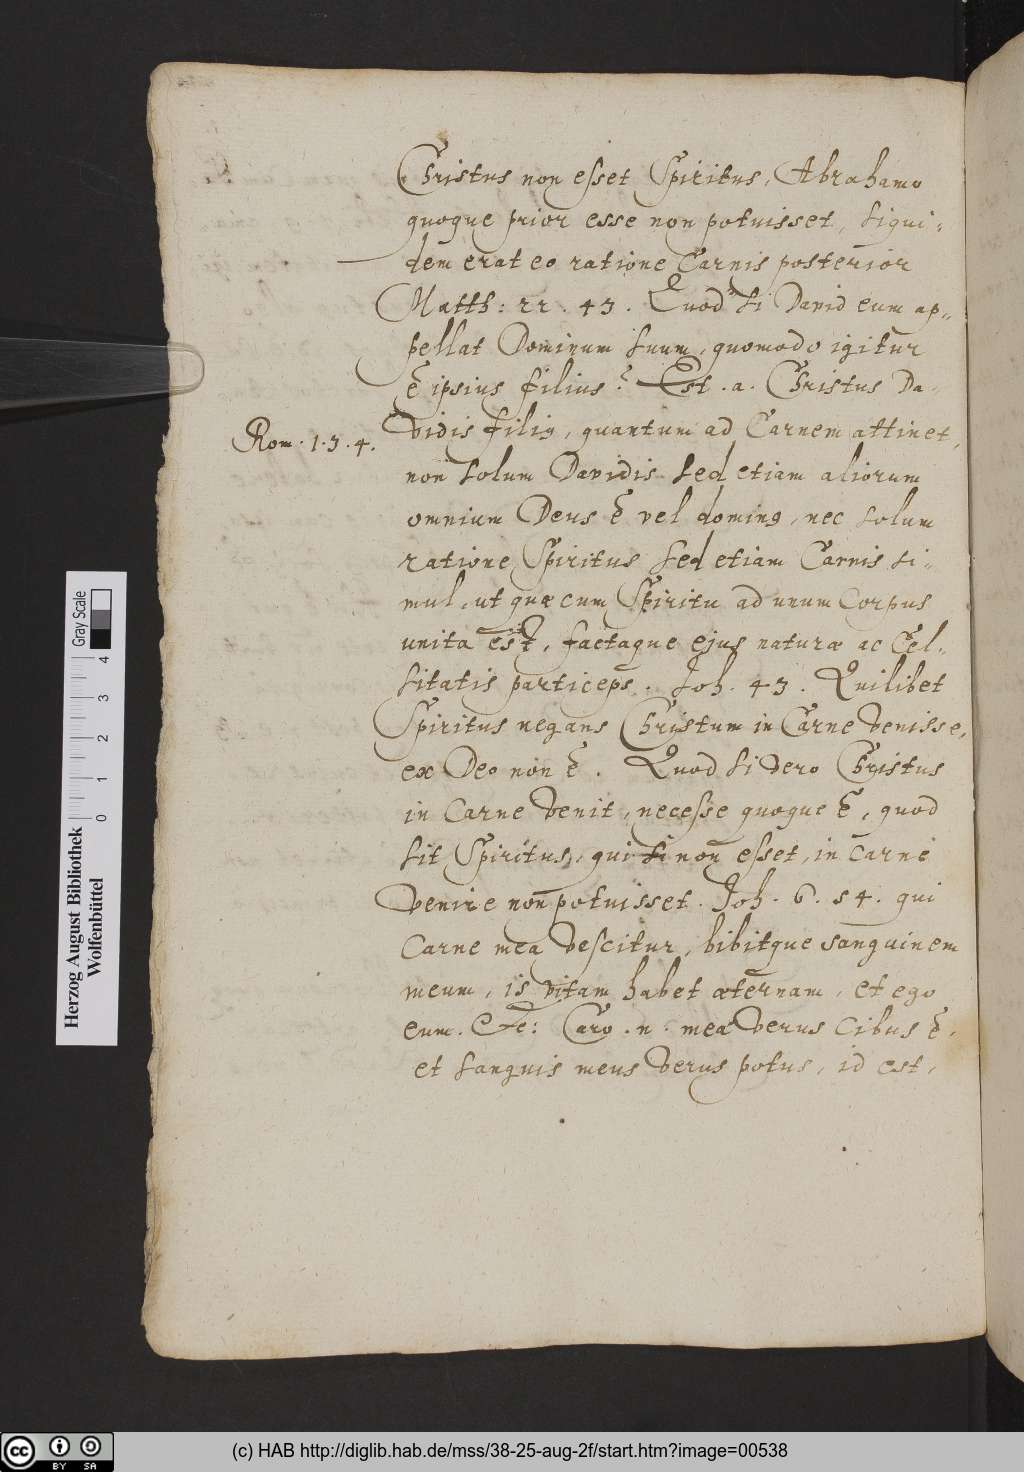 Christus non esset Spiritus, Abrahamo
quoque prior esse non potuisset, siqui-
dem erat eo ratione Carnis posterior
Matth: 22. 43. Quod si David eum ap-
pellat Dominum suum, quomodo igitur
ē ipsius filius? Est. a. Christus Da-
Rom. 1. 3. 4.
vidis filiꝰ, quantum ad Carnem attinet,
non solum Davidis sed etiam aliorum
omnium Deus ē vel dominꝰ, nec solum
ratione Spiritus sed etiam Carnis si-
mul, ut quæ cum Spiritu ad unum Corpus
unita est, factaque ejus naturæ ac Cel-
sitatis particeps. Joh. 43. Quilibet
Spiritus negans Christum in Carne venisse,
ex Deo non ē. Quod si vero Christus
in Carne venit, necesse quoque ē, quod
sit Spiritus, qui si non esset, in carne
venire non potuisset. Joh. 6. 54. qui
Carne mea vescitur, bibitque sanguinem
meum, is vitam habet æternam, et ego
eum. Etc: Caro. n. mea verus Cibus ē,
et sanguis meus verus potus, id est,
Herzog August Bibliothek
Wolfenbüttel
0 1 2 3 4
Gray Scale
cc BY SA
(c) HAB http://diglib.hab.de/mss/38-25-aug-2f/start.htm?image=00538